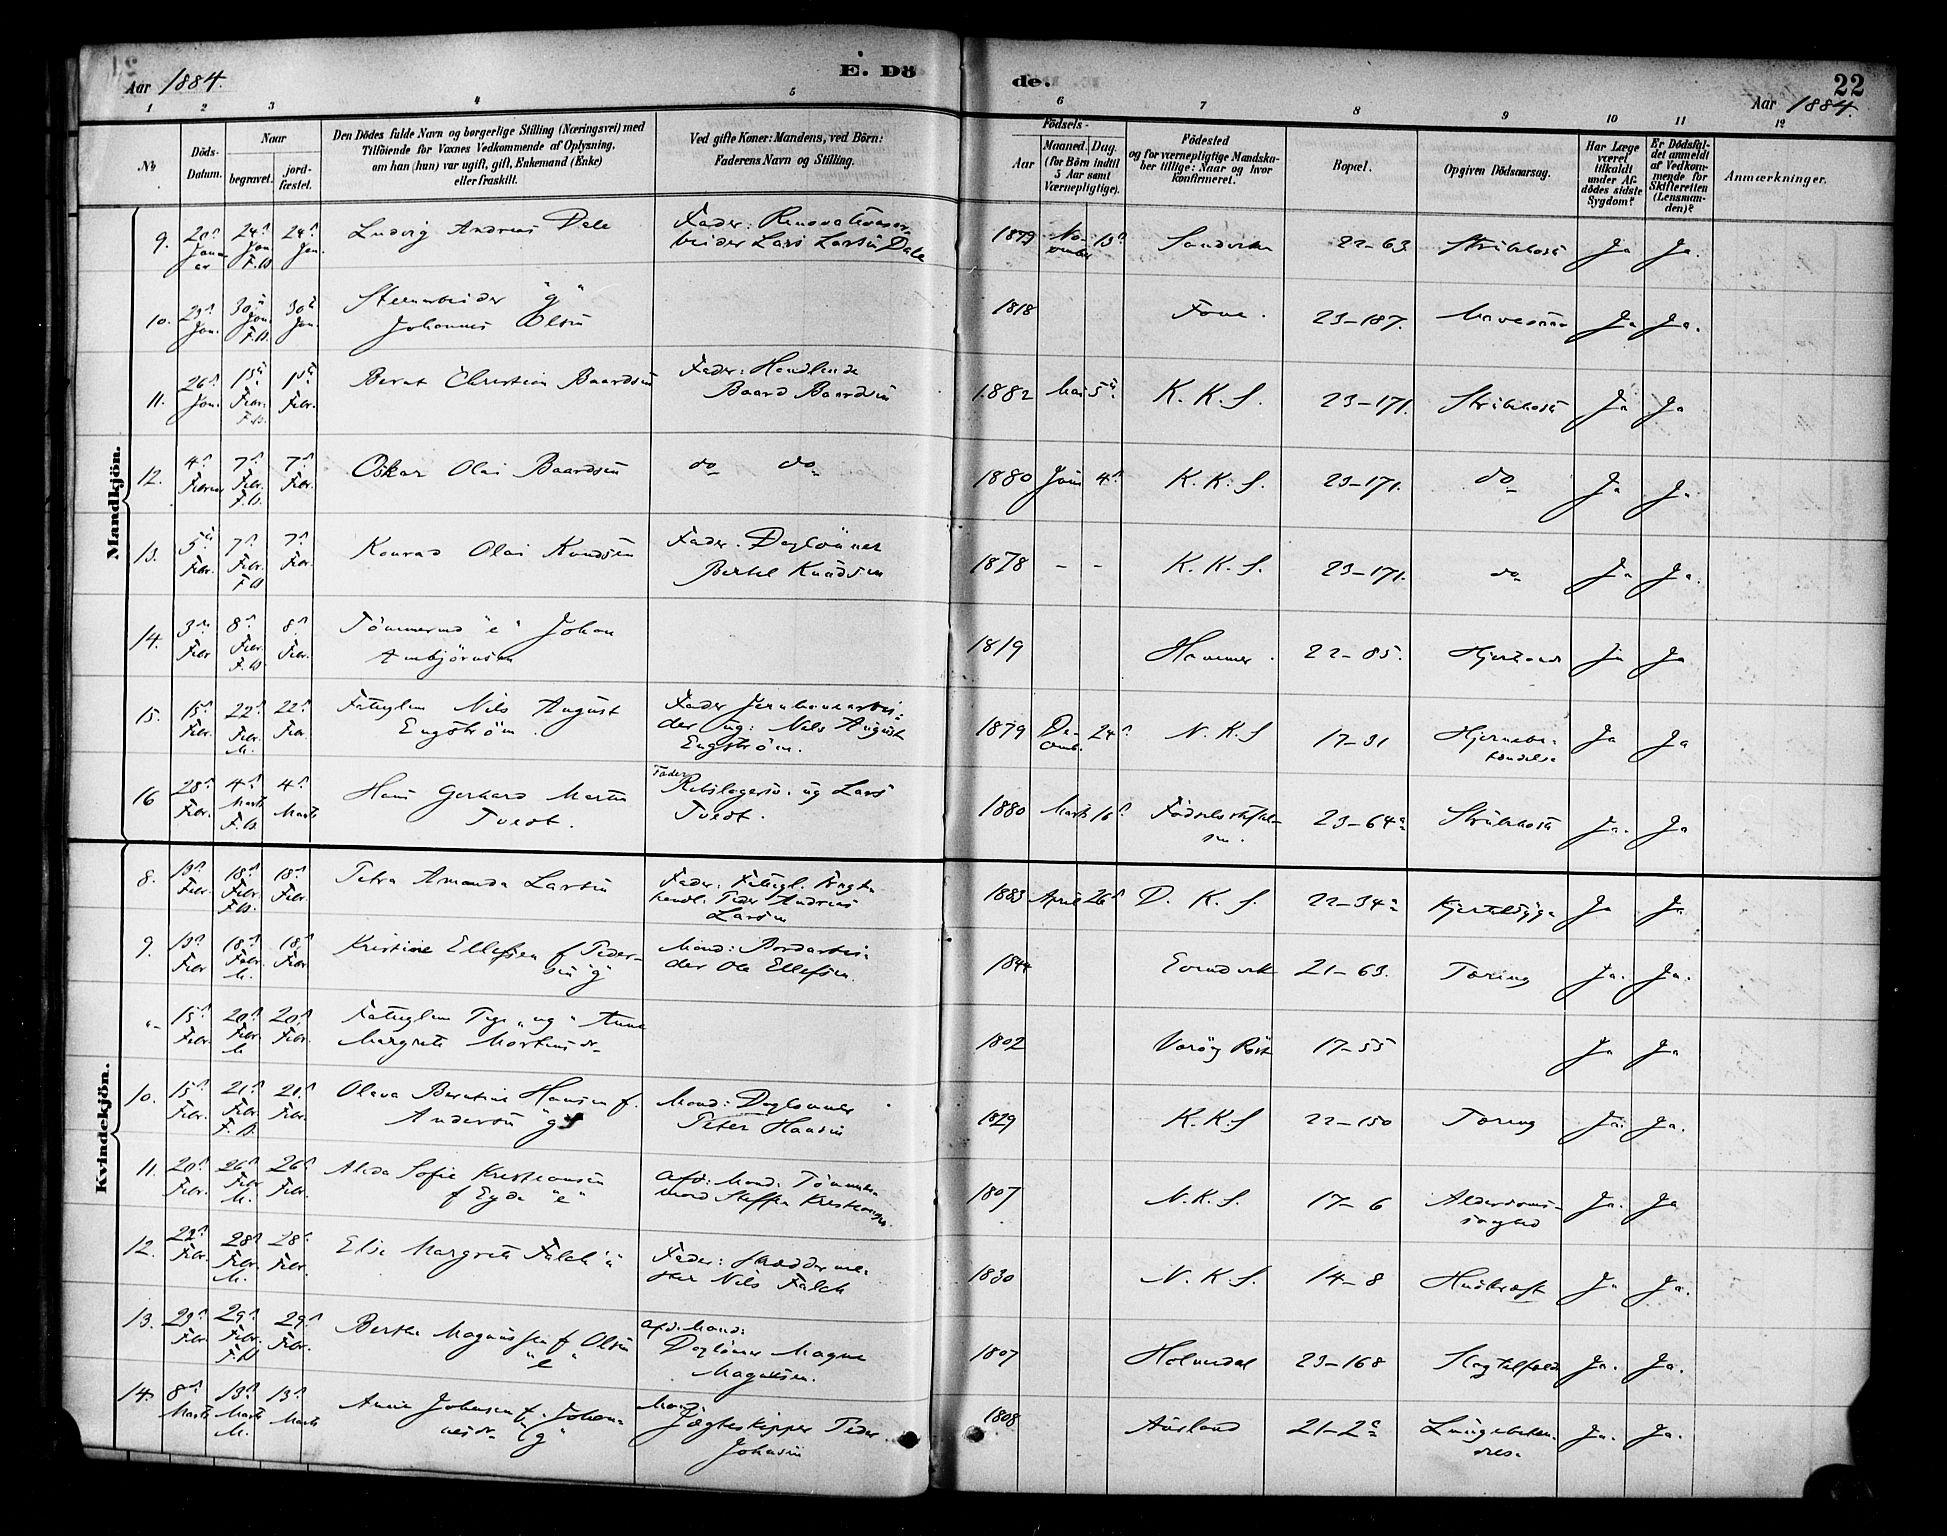 Aar 1884.
E. Dö
de.
22
Aar 1884.
1 2 3 4 5 6 7 8 9 10 11 12
№
Döds-Datum.
Naar
begravet.
jord-fæstet.
Den Dödes fulde Navn og borgerlige Stilling (Næringsvei) med
Tilföiende for Voxnes Vedkommende af Oplysning,
om han (hun) var ugift, gift, Enkemand (Enke)
eller fraskilt.
Ved gifte Koner: Mandens, ved Börn:
Faderens Navn og Stilling.
Födsels-
Aar
Maaned. Dag.
(for Börn indtil
5 Aar samt
Værnepligtige).
Födested
og for værnepligtige Mandska-
ber tillige: Naar og hvor
konfirmeret.
Bopæl.
Opgiven Dödsaarsag.
Har Læge
været
tilkaldt
under Af-
dödes sidste
Sygdom?
Er Dödsfal-
det anmeldt
af Vedkom-
mende for
Skifteretten
(Lensman-
den)?
Anmærkninger.
Mandkjön.
9. Ludvig Andreas Dale
Fader: Renovationsar-
beider Lars Larsen Dale
1879 November Sandviken 22-63 Strubehoste Ja Ja.
10. 29 Jan. 30 Jan. F.B. 30 Jan. Stenarbeider "g"
Johannes Olsen
1818 Fane. 23-187. Mavesaar Ja Ja.
11. 26 Jan. Febr. F.B. Febr. Bernt Christian Baardsen
Fader: Handlende
Baard Baardsen
1882 Mai 5 K. K. S. 23-171. Strubehoste Ja Ja
12. 4 Februar 7 Febr. F.B. 7 Febr. Oskar Olai Baardsen do do
1880 Juni 4 K. K. S. 23-171. do Ja Ja
13. 5 Febr. 7 Febr. F.B. 7 Febr. Konrad Olai Knudsen
Fader: Daglönner
Bertel Knudsen
1878 - - K. K. S. 23-171. do Ja Ja.
14. 3 Febr 8 Febr. F.B. 8 Febr. Tömmermd "e" Johan
Arnbjörnsen
1819 Hammer. 22-85. Ja Ja
15. 15 Febr. 22 Febr. M. 22 Febr. Fattiglem Nils August
Engström
Fader Jernbanearbei-
der ug: Nils August
Engström.
1879 Decemb. 24 N. K. S 17-31 Hjernebe-
tændelse Ja Ja
16 28 Febr. 4 Marts F.B. 4 Marts Hans Gerhard Martin
Tvedt.
Fader
Rebslagersv. ug Lars
Tvedt.
1880 Marts 16 Födselsstiftel-
sen. 23-64a Strubehoste Ja. Ja
Kvindekjön.
8. 13 Febr. 18 Febr. F.B. 18 Febr. Petra Amanda Larsen
Fader: Fattigl. Frugt-
handl. Peder Andreas
Larsen
1883 April 26 D. K. S. 22-34a Kjertelsyge Ja Ja
9. 13 Febr 18 Febr. M. 18 Febr Kristine Ellefsen f. Peder-
sen "g"
Mand: Jordarbei-
der Ole Ellefsen.
1844 Evindvik 21-63. Tæring Ja. Ja.
"- 15 Febr. 20 Febr. M 20 Febr. Fattiglem Pige "ug" Anne
Margrete Mortensdr
1802 Værøy Röst 17-55 Ja Ja
10. 15 Febr. 21 Febr. F.B. 21 Febr. Olava Berntine Hansen f.
Andersen "g"
Mand: Daglönner
Peter Hansen
1829 K. K. S 22-150 Tæring Ja. Ja.
11. 20 Febr. 26 Febr M. 26 Febr. Alida Sofie Kristiansen
f Eyde "e"
afd: Mand: Tömmer-
mand Steffen Kristiansen.
1807 N. K. S. 17-6 Alderdoms-
svaghed Ja. Ja
12. 22 Febr. 28 Febr. M. 28 Febr. Elise Margrete Falch "u"
Fader: Skræddermes-
ter Nils Falch
1830 N. K. S. 14-8 Ja Ja.
13. 23 Febr 29 Febr. F.B 29 Febr. Berthe Magnussen f Olsen
"e"
afd: Mand:
Daglönner Magne
Magnussen.
1807 Holmedal 23-168 Slagtilfælde Ja. Ja.
14. 8 Marts 13 Marts M. 13 Marts Anne Johnsen f. Johan-
nesdr "g"
Mand:
Jægteskipper Peder
Johnsen
1808 Aurland 21-2a Lungebetæn-
delse Ja. Ja.